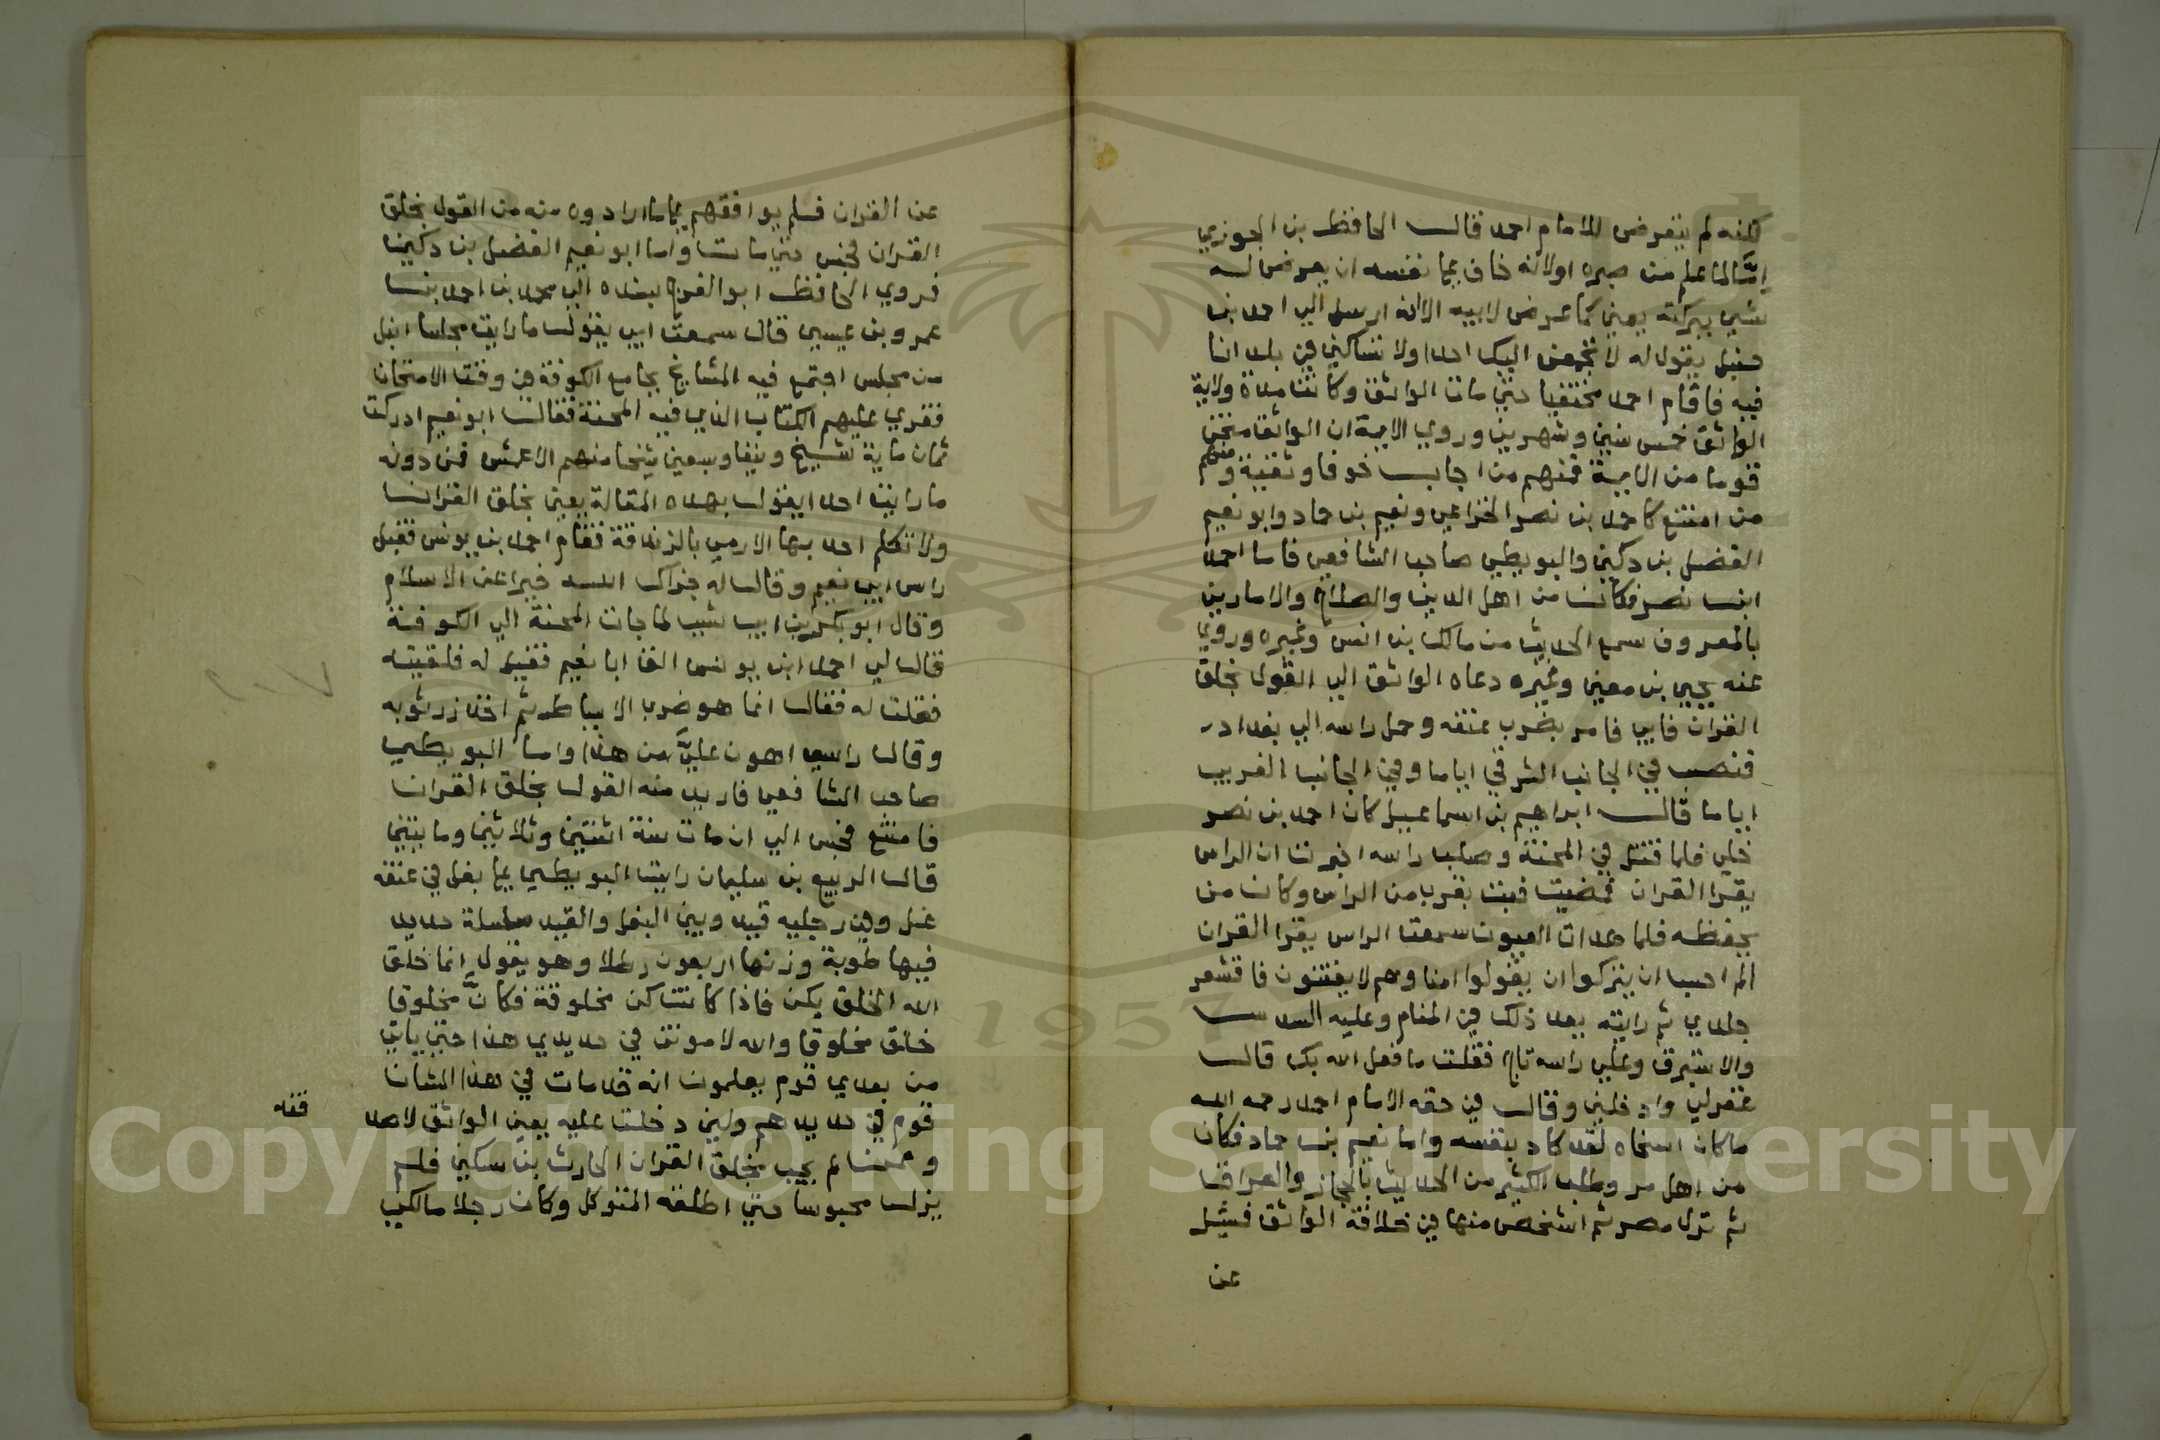 لكنه لم يتعرض للامام احمد قال الحافظ بن الجوزي
إمَّا لما علم من صبره او لانه خاف على نفسه ان يعرض له
شي ببركته يعني كما عرض لابيه الا انه ارسل الي احمد بن
حنبل يقول له لا تجمعن اليك احدا ولا تساكني في بلد انا
فيه فاقام احمد مختفيا حتي مات الواثق وكانت مدة ولاية
الواثق خمس سنين وشهرين وروي الايمة ان الواثق امتحن
قوما من الايمة فمنهم من اجاب خوفا وتقية ومنهم
من امتنع كاحمد بن نصر الخزاعي ونعيم بن حماد وابو نعيم
الفضل بن دكين والبويطي صاحب الشافعي فاما احمد
ابن نصر فكان من اهل الدين والصلاح والامارين
بالمعروف سمع الحديث من مالك بن انس وغيره وروي
عنه يحيي بن معين وغيره دعاه الواثق الي القول بخلق
القران فابي فامر بضرب عنقه وحمل راسه الي بغداد
فنصب في الجانب الشرقي اياما وفي الجانب الغربي
اياما قال ابراهيم بن اسماعيل كان احمد بن نصر
خلي فلما قتل في المحنة وصلب راسه اخبرت ان الراس
يقرا القران فمضيت فبت بقرب من الراس وكان من
يحفظه فلما هدات العيون سمعت الراس يقرا القران
الم احسب ان يتركوا ان يقولوا امنا وهم لا يفتنون فاقشعر
جلدي ثم رايته بعد ذلك في المنام وعليه السندس
والاستبرق وعلي راسه تاج فقلت ما فعل الله بك قال
غفر لي وادخلني وقال في حقه الامام احمد رحمه الله
ما كان اسخاه لقد كاد بنفسه واما نعيم بن حماد فكان
من اهل مرو طلب الكثير من الحديث بالحجاز والعراق
ثم نزل مصر ثم اشخص منها في خلافة الواثق فسيل
عن
عن القران فلم يوافقهم على ما ارادوه منه من القول بخلق
القران فحبس حتي مات واما ابو نعيم الفضل بن دكين
فروي الحافظ ابو الفرج بسنده الي محمد بن احمد بن
عمرو بن عيسي قال سمعت ابي يقول ما رايت مجلسا انبل
من مجلس اجتمع فيه المشايخ بجامع الكوفة في وقت الامتحان
فقري عليهم الكتاب الذي فيه المحنة فقال ابو نعيم ادركت
ثمان ماية شيخ ونيفا وسبعين شيخا منهم الاعمش فمن دونه
ما رايت احدا يقول بهذه المقالة يعني بخلق القران
ولا تكلم احد بها الا رمي بالزندقة فقام احمد بن يونس فقبل
راس ابي نعيم وقال له جزاك الله خيرا عن الاسلام
وقال ابو بكر بن ابي شيب لما جات المحنة الي الكوفة
قال لي احمد ابن يونس القا ابا نعيم فقيل له فلقيته
فقلت له فقال انما هو ضرب الاسياط ثم اخذ زر ثوبه
وقال راسي اهون عليَّ من هذا واما البويطي
صاحب الشافعي فاريد منه القول بخلق القران
فامتنع فحبس الي ان مات سنة اثنتين وثلاثين ومايتين
قال الربيع بن سليمان رايت البويطي على بغل في عنقه
غل وفي رجليه قيد وبين البغل والقيد سلسلة حديد
فيها طوبة وزنها اربعون رطلا وهو يقول إنما خلق
الله الخلق بكن فاذا كانت كن مخلوقة فكانَّ مخلوقا
خلق مخلوقا والله لاموتن في حديدي هذا حتي ياتي
من بعدي قوم يعلمون انه قد مات في هذا الشان
قوم في حديدهم ولين دخلت عليه يعني الواثق لاصد
قنه
وممن لم يجب بخلق القران الحارث بن سكين فلم
يزل محبوسا حتي اطلقه المتوكل وكان رجلا مالكي